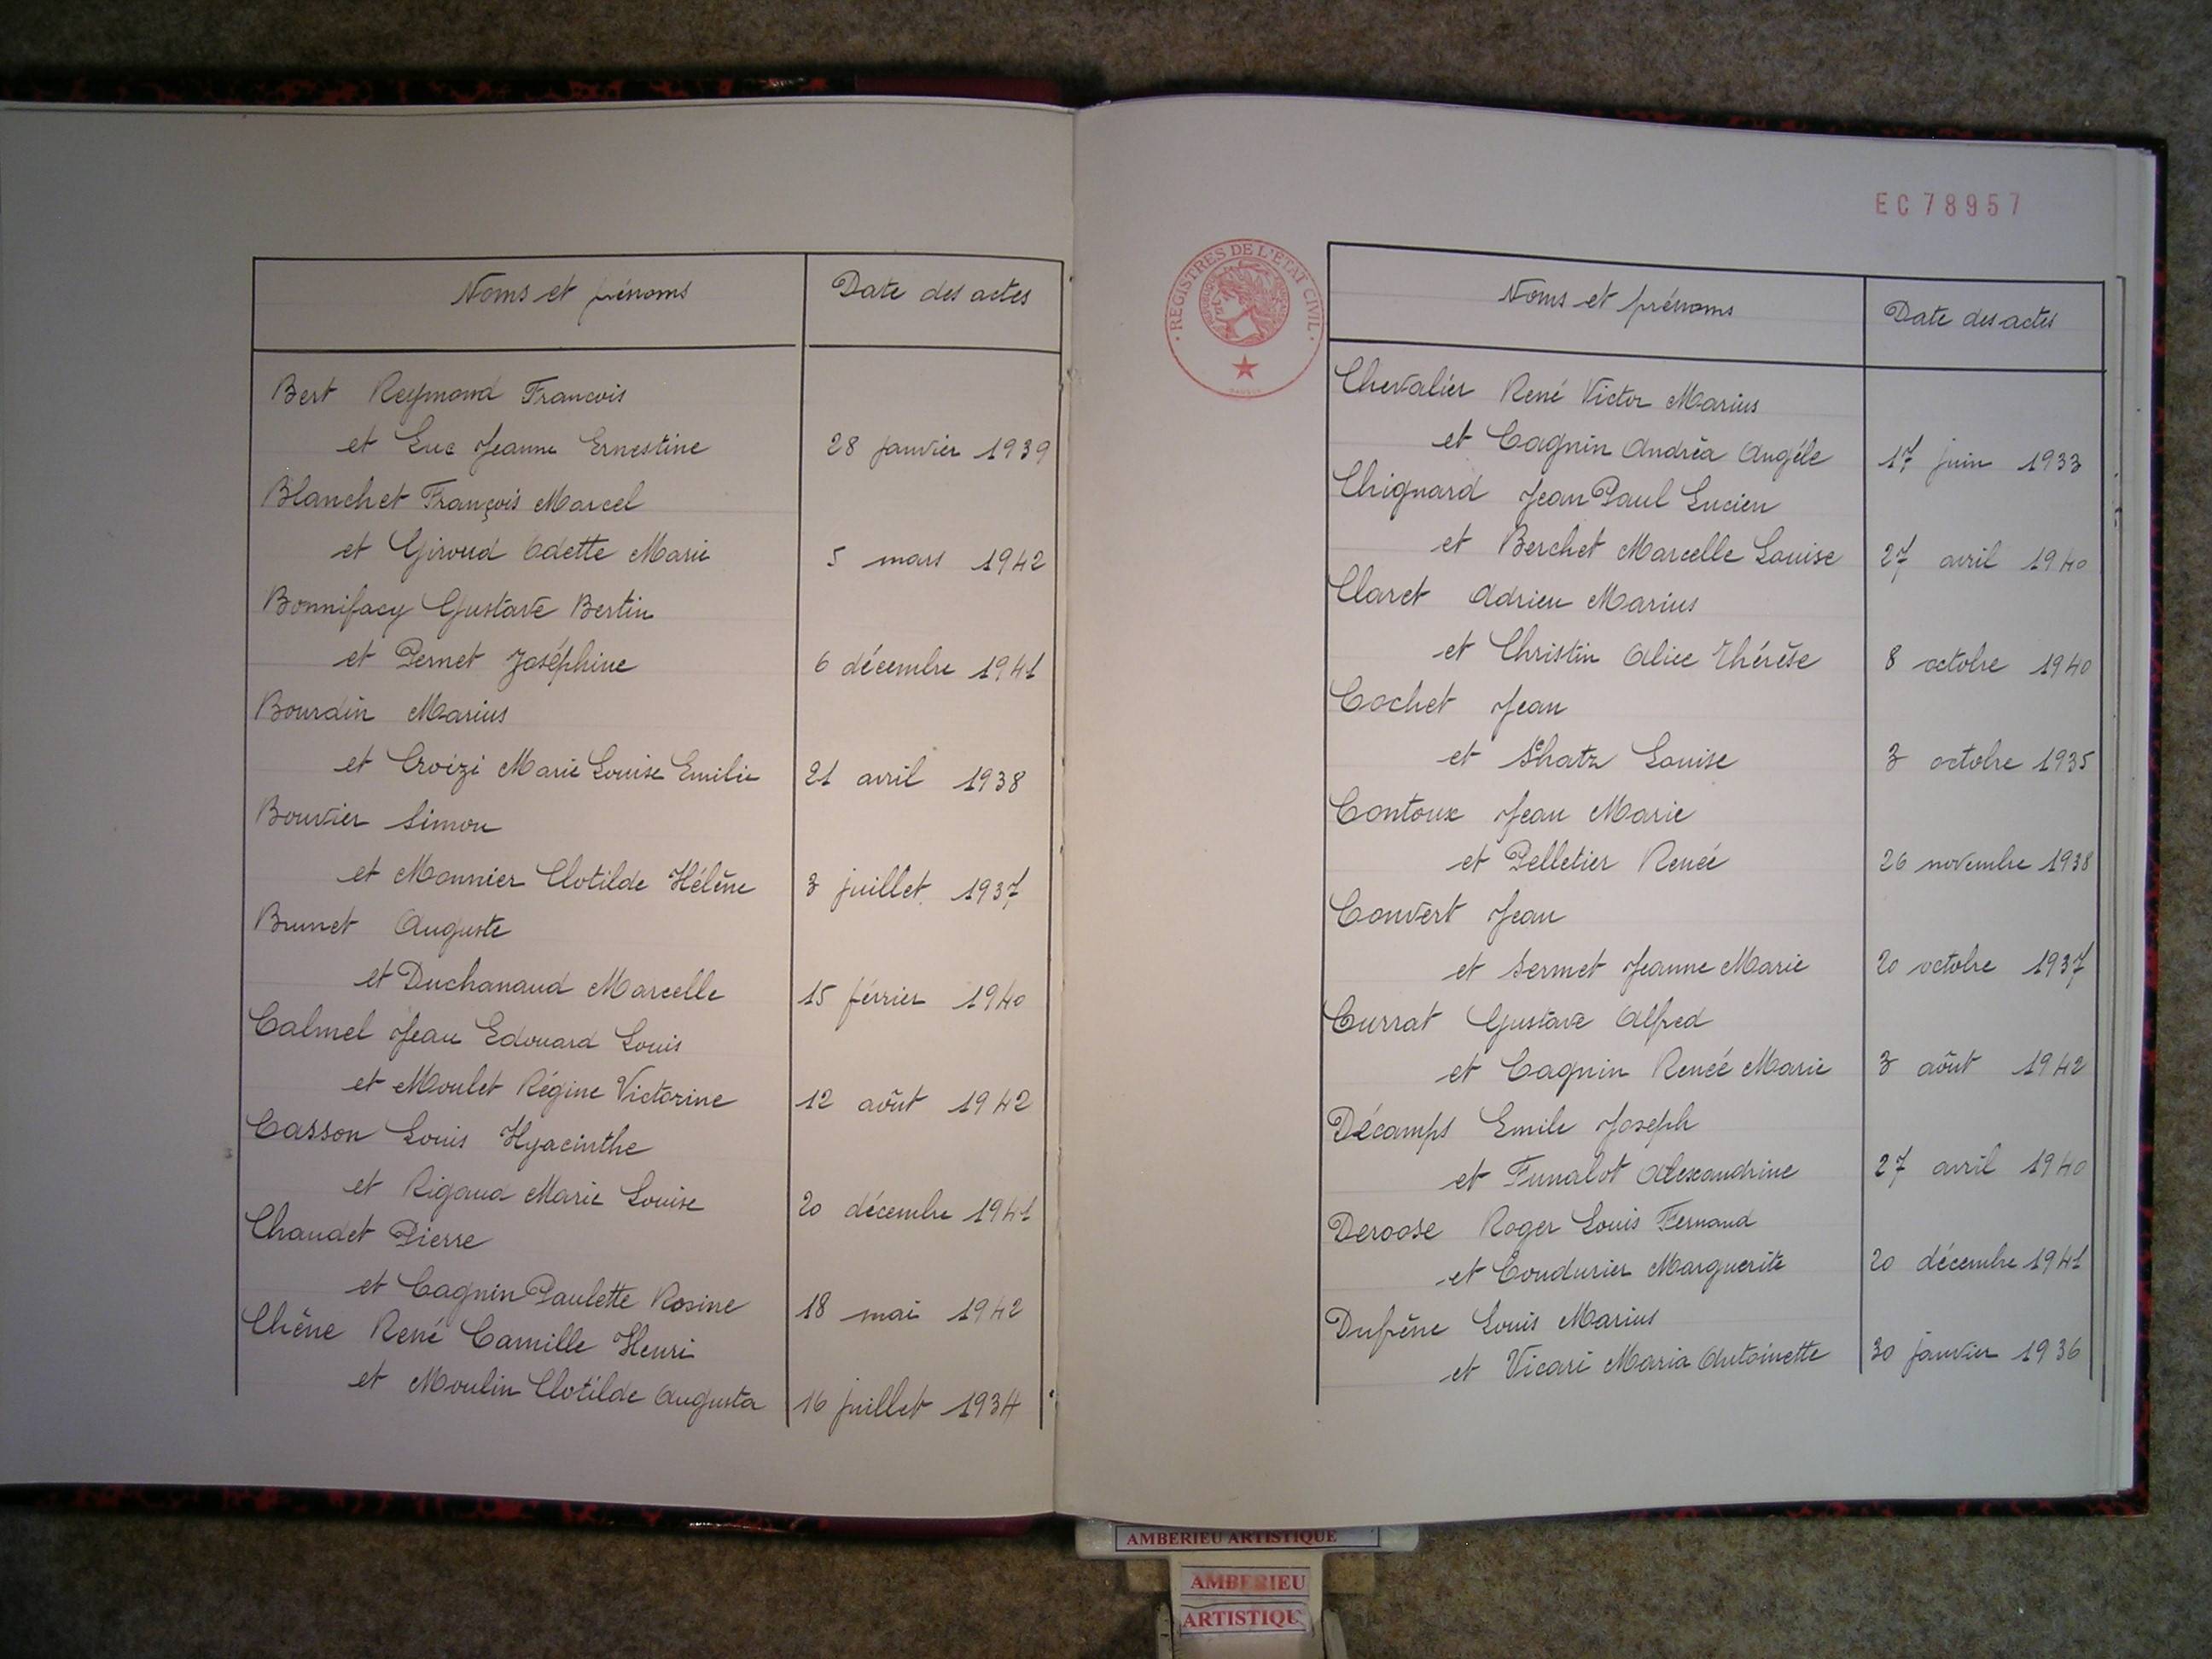 Noms et prénoms
Date des actes
Bert Reymond Francois
et Luc Jeanne Ernestine 28 janvier 1939
Blanchet François Marcel
et Giroud Odette Marie 5 mars 1942
Bonnifacy Gustave Bertin
et Pernet Joséphine 6 décembre 1941
Bourdin Marius
et Croizi Marie Louise Emilie 21 avril 1938
Bouvier Simon
et Monnier Clotilde Hélène 3 juillet 1937
Brunet Auguste
et Duchanaud Marcelle 15 février 1940
Calmel Jean Edouard Louis
et Moulet Régine Victorine 12 aôut 1942
Casson Louis Hyacinthe
et Rigaud Marie Louise 20 décembre 1941
Chaudet Pierre
et Cagnin Paulette Rosine 18 mai 1942
Chêne René Camille Henri
et Moulin Clotilde Augusta 16 juillet 1934
EC 78957
REGISTRES DE L'ETAT CIVIL
Noms et prénoms
Date des actes
Chevalier René Victor Marius
et Cagnin Andréa Angéle 17 juin 1933
Chignard Jean Paul Lucien
et Berchet Marcelle Louise 27 avril 1940
Claret Adrien Marius
et Christin Alice Thérèse 8 octobre 1940
Cochet Jean
et Schatz Louise 3 octobre 1935
Contoux Jean Marie
et Pelletier Renée 26 novembre 1938
Convert Jean
et Sermet Jeanne Marie 20 octobre 1937
Currat Gustave Alfred
et Cagnin Renée Marie 3 aôut 1942
Décamps Emile Joseph
et Funalot Alexandrine 27 avril 1940
Deroose Roger Louis Fernand
et Coudurier Marguerite 20 décembre 1941
Dufrêne Louis Marius
et Vicari Maria Antoinette 30 janvier 1936
AMBERIEU ARTISTIQUE
AMBERIEU
ARTISTIQU